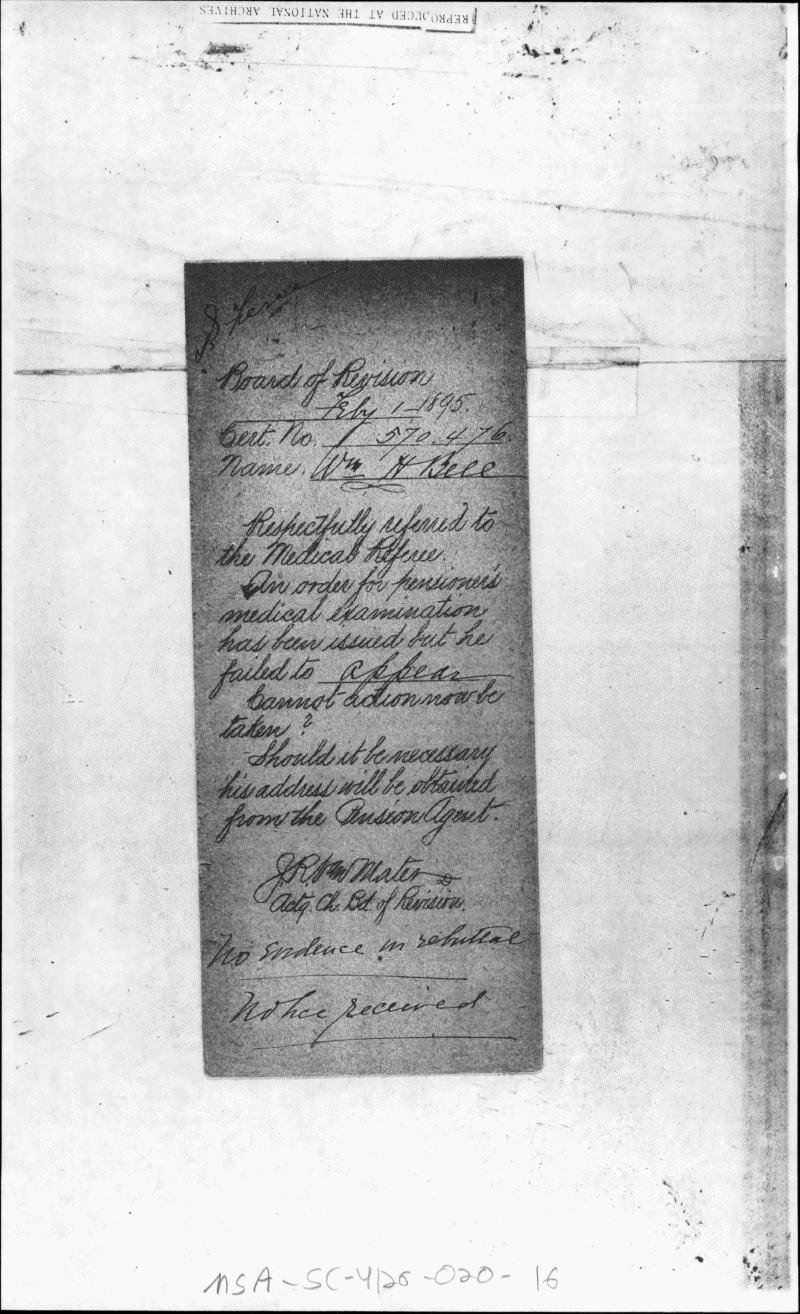 REPRODUCED AT THE NATIONAL ARCHIVES
Board of Revision
Feby 1 1895.
Cert. No. 570.476.
Name, Wm H Bell
Respectfully referred to
the Medical Referee.
An order for pensioner's
medical examination
has been issued but he
failed to appear
Cannot action now be
taken?
Should it be necessary
his address will be obtained
from the Pension Agent.
J.R. Van Mater
Actg. Ch. Bd. of Revision.
No Evidence in rebuttal
Notice received
MSA-SC-4126-020-16